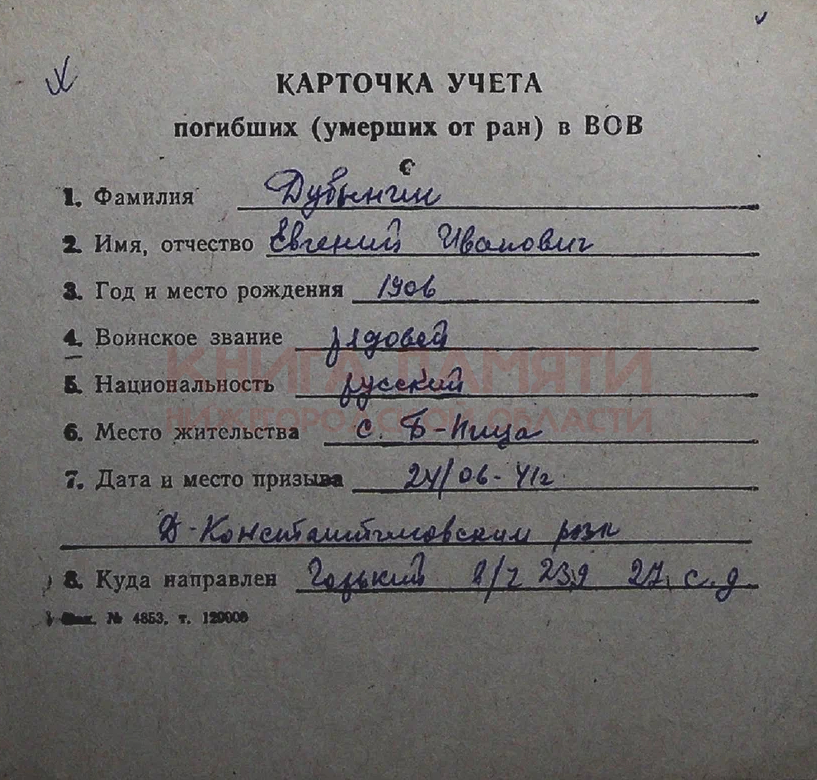 КАРТОЧКА УЧЕТА
погибших (умерших от ран) в ВОВ
1. Фамилия Дубынгин
2. Имя, отчество Евгений Иванович
3. Год и место рождения 1906
4. Воинское звание рядовой
5. Национальность русский
КНИГА ПАМЯТИ
НИЖЕГОРОДСКОЙ ОБЛАСТИ
6. Место жительства с. Б-Пица
7. Дата и место призыва 24/06-41г
Д-Константиновским рвк
8. Куда направлен Горький в/ч 239 27 с.д.
Зак. № 4853, т. 120000